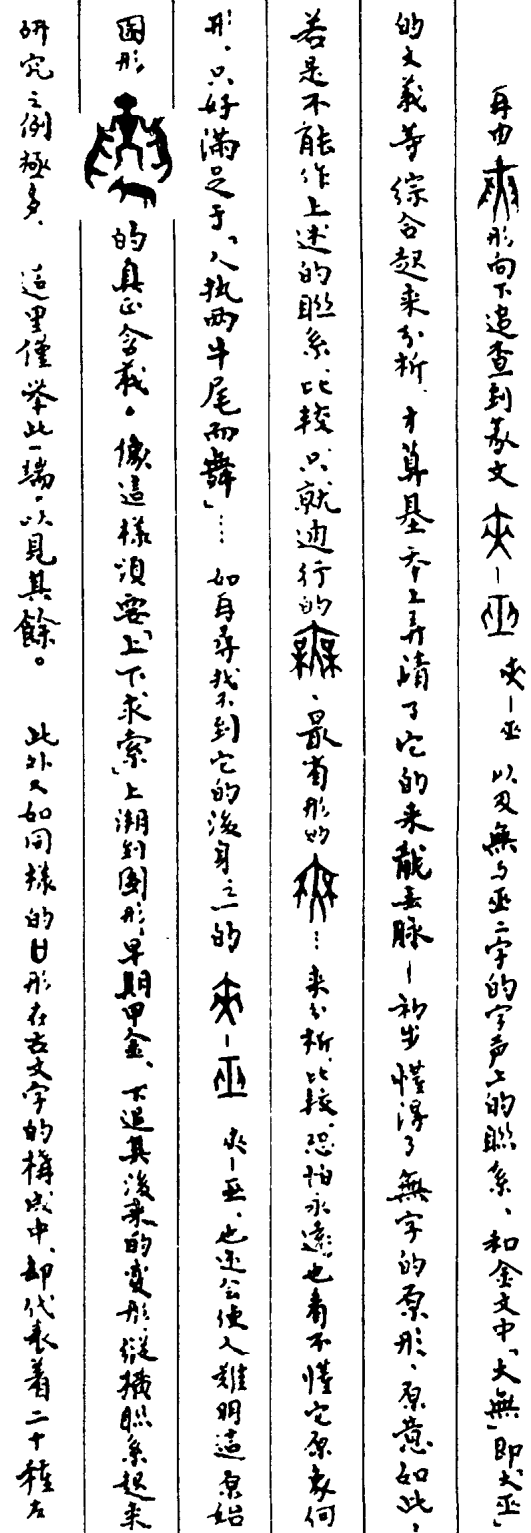 再由形向下追查到篆文夾—巫 夾—巫 以及無与巫二字的字声上的联系、和金文中「大無」即大巫」
的文義等綜合起来分析、才算基本上弄清了它的来龍去脉—初步懂得了無字的原形、原意如此，
若是不能作上述的联系、比較、只就通行的、最省形的…来分析、比較、恐怕永遠也看不懂它原象何
形、只好滿足于「人执兩牛尾而舞」… 如再尋找不到它的後身之一的夾—巫 夾—巫、也还会使人難明這原始
圖形的真正含義。像這樣須要「上下求索」上溯到圖形、早期甲金、下追其後来的变形、縱橫联系起来
研究之例極多、這里僅举此一端、以見其餘。 此外又如同樣的日形在古文字的構成中、却代表着二十種左